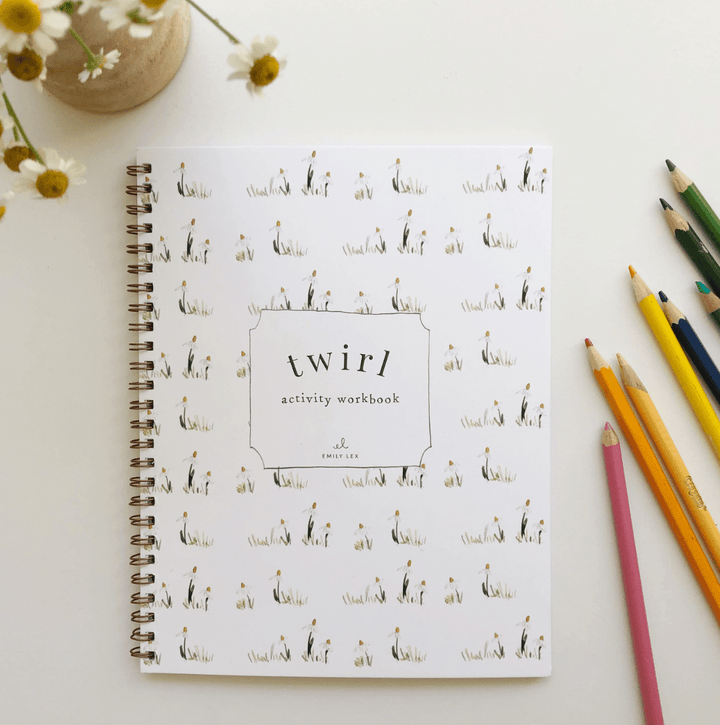 twirl
activity workbook
el
EMILY LEX